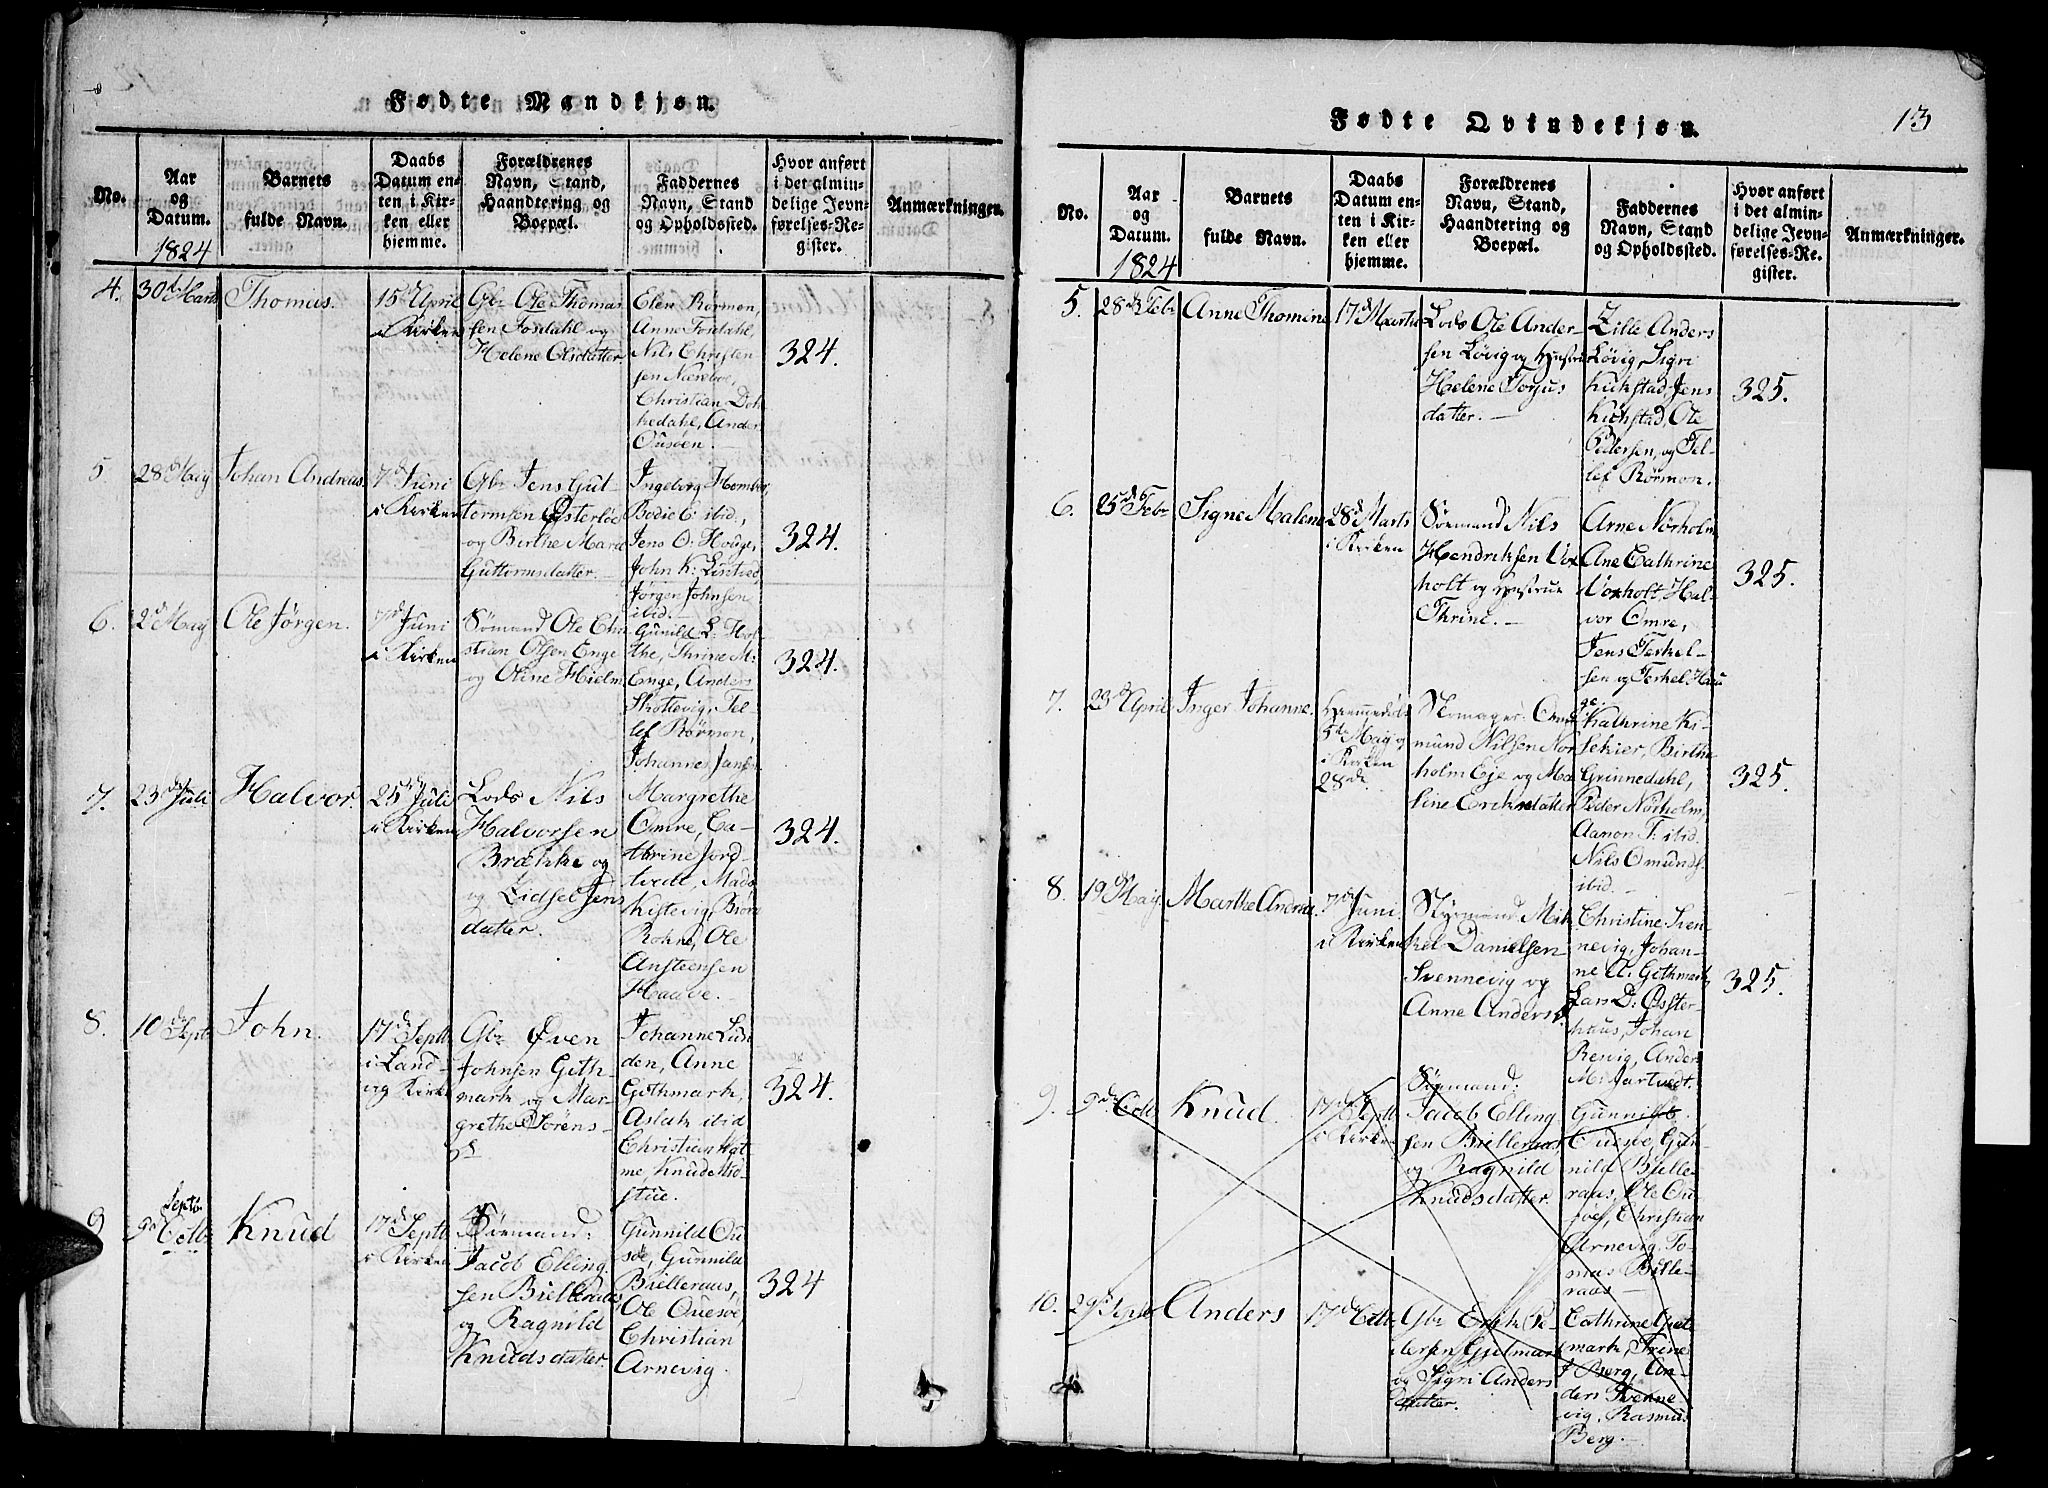 Fødte Mandkjøn.
No.
Aar
og
Datum.
1824
Barnets
fulde Navn.
Daabs
Datum en-
ten i Kir-
ken eller
hjemme.
Forældrenes
Navn, Stand,
Haandtering og
Boepæl.
Faddernes
Navn, Stand
og Opholdssted.
Hvor anført
i det almin-
delige Jevn-
førelses-Re-
gister.
Anmærkninger.
4.
30d Marts
Thomas.
15d April
i Kirken
Gbr Ole Thomas
sen Fosdahl og
Helene Olsdatter
Elen Rørmon,
Anne Fosdahl,
Nils Christen
sen
Christian Dok
kedahl, Ander
324.
5
28d Maij
Johan Andreas
7d Juni
i Kirken
Gbr Jens Gut-
tormsen
og Birthe Marie
Guttormsdatter.
Ingeborg
Bodie ibid.,
Jens O:
John K:
Jørgen Johnsen
ibid.
324.
6.
2d Maij
Ole Jørgen.
7d Juni
i Kirken
Sømand Ole Chri
stian Olsen Enge
og Oline Hielm
Gunild L: Hol
the, Thrine M:
Enge, Anders
Skottevig, Tel-
lef Rørmon,
Johannes Jansen
324.
7.
23de Juli
Halvor.
25d Juli
i Kirken
Lods Nils
Halvorsen
Brække og
og Zidsel Jens
datter.
Margrethe
Omre, Ca-
thrine Jord-
tvedt, Mads
Kistevig, Biørn
Rohne, Ole
Ansteensen
Haave.
324.
8.
10d Septb
John.
17d Septb
i Land-
vig Kirke
Gbr Even
Johnsen Geth-
mark og Mar-
grethe Sørens-
d.
Johanne Lun
den, Anne
Gethmark,
Aslak ibid
Christian
me, Knud
stue.
324.
9
Septb.
9d Octb
Knud
17d Septb
i Kirken
Sømand:
Jacob Elling
sen Bielleraas
og Ragnild
Knudsdatter.
Gunnild Ou
søe, Gunnild
Bielleraas,
Ole Ouesøe,
Christian
Arnevig.
324
Fødte Qvindekjøn.
13
No.
Aar
og
Datum.
1824
Barnets
fulde Navn.
Daabs
Datum en-
ten i Kir-
ken eller
hjemme.
Forældrenes
Navn, Stand,
Haandtering og
Boepæl.
Faddernes
Navn, Stand
og Opholdssted.
Hvor anført
i det almin-
delige Jevn-
førelses-Re-
gister.
Anmærkninger.
5.
28d Febr
Anne Thomine
17d Marts
Lods Ole Ander-
sen Løvig og Hustrue
Helene Torjus
datter.
Zille Anders
Løvig, Sigri
Kickstad, Jens
Kickstad, Ole
Pedersen, og Tel-
lef Rørmon.
325.
6.
25d Febr
Signe Malene
28d Marts
i Kirken
Sømand Nils
Hendriksen Vox
holt og Hustrue
Thrine.
Arne Nørholm
Ane Cathrine
Voxholt, Hal-
vor Omre,
Jens Terkel-
sen og Terkel Hau
ge.
325.
7.
23d April
Inger Johanne.
Hiemmedøbt
5te Maij og
i Kirken
28d.
Skomager: Om
mund Nilsen Nør
holm Eje og Ma
line Eriksdatter
Kathrine Ki-
Birthe
Grinnedahl,
Peder Nørholm,
Aanon T: ibid.
Nils Omunds.
ibid.
325.
8.
19d Maij
Marthe Andrea.
7d Juni
i Kirken
Styrmand Mik
kel Danielsen
Svennevig og
Anne Anders d.
Christine Sven-
nevig, Johan-
ne A: Gethmark
Lars D: Øster-
huus, Johan
Revig, Anders
M: Jortvedt.
325.
9.
9d Octb
Knud.
17d Septb
i Kirken
Sømand:
Jacob Elling
sen Bielleraas
og Ragnild
Knudsdatter.
Gunnild
Ouesøe, Gun-
nild Bielle
raas, Ole Ou-
søe, Christian
Arnevig, To-
mas Bille-
raas
10.
29d Septb
Anders
17d Octb
Gbr Erik Pe-
dersen Gjetmark
og Sigri Anders
datter.
Cathrine Gjet
mark, Trine
J Berg, An-
ders Svenne-
vig, Rasmus
Berg.